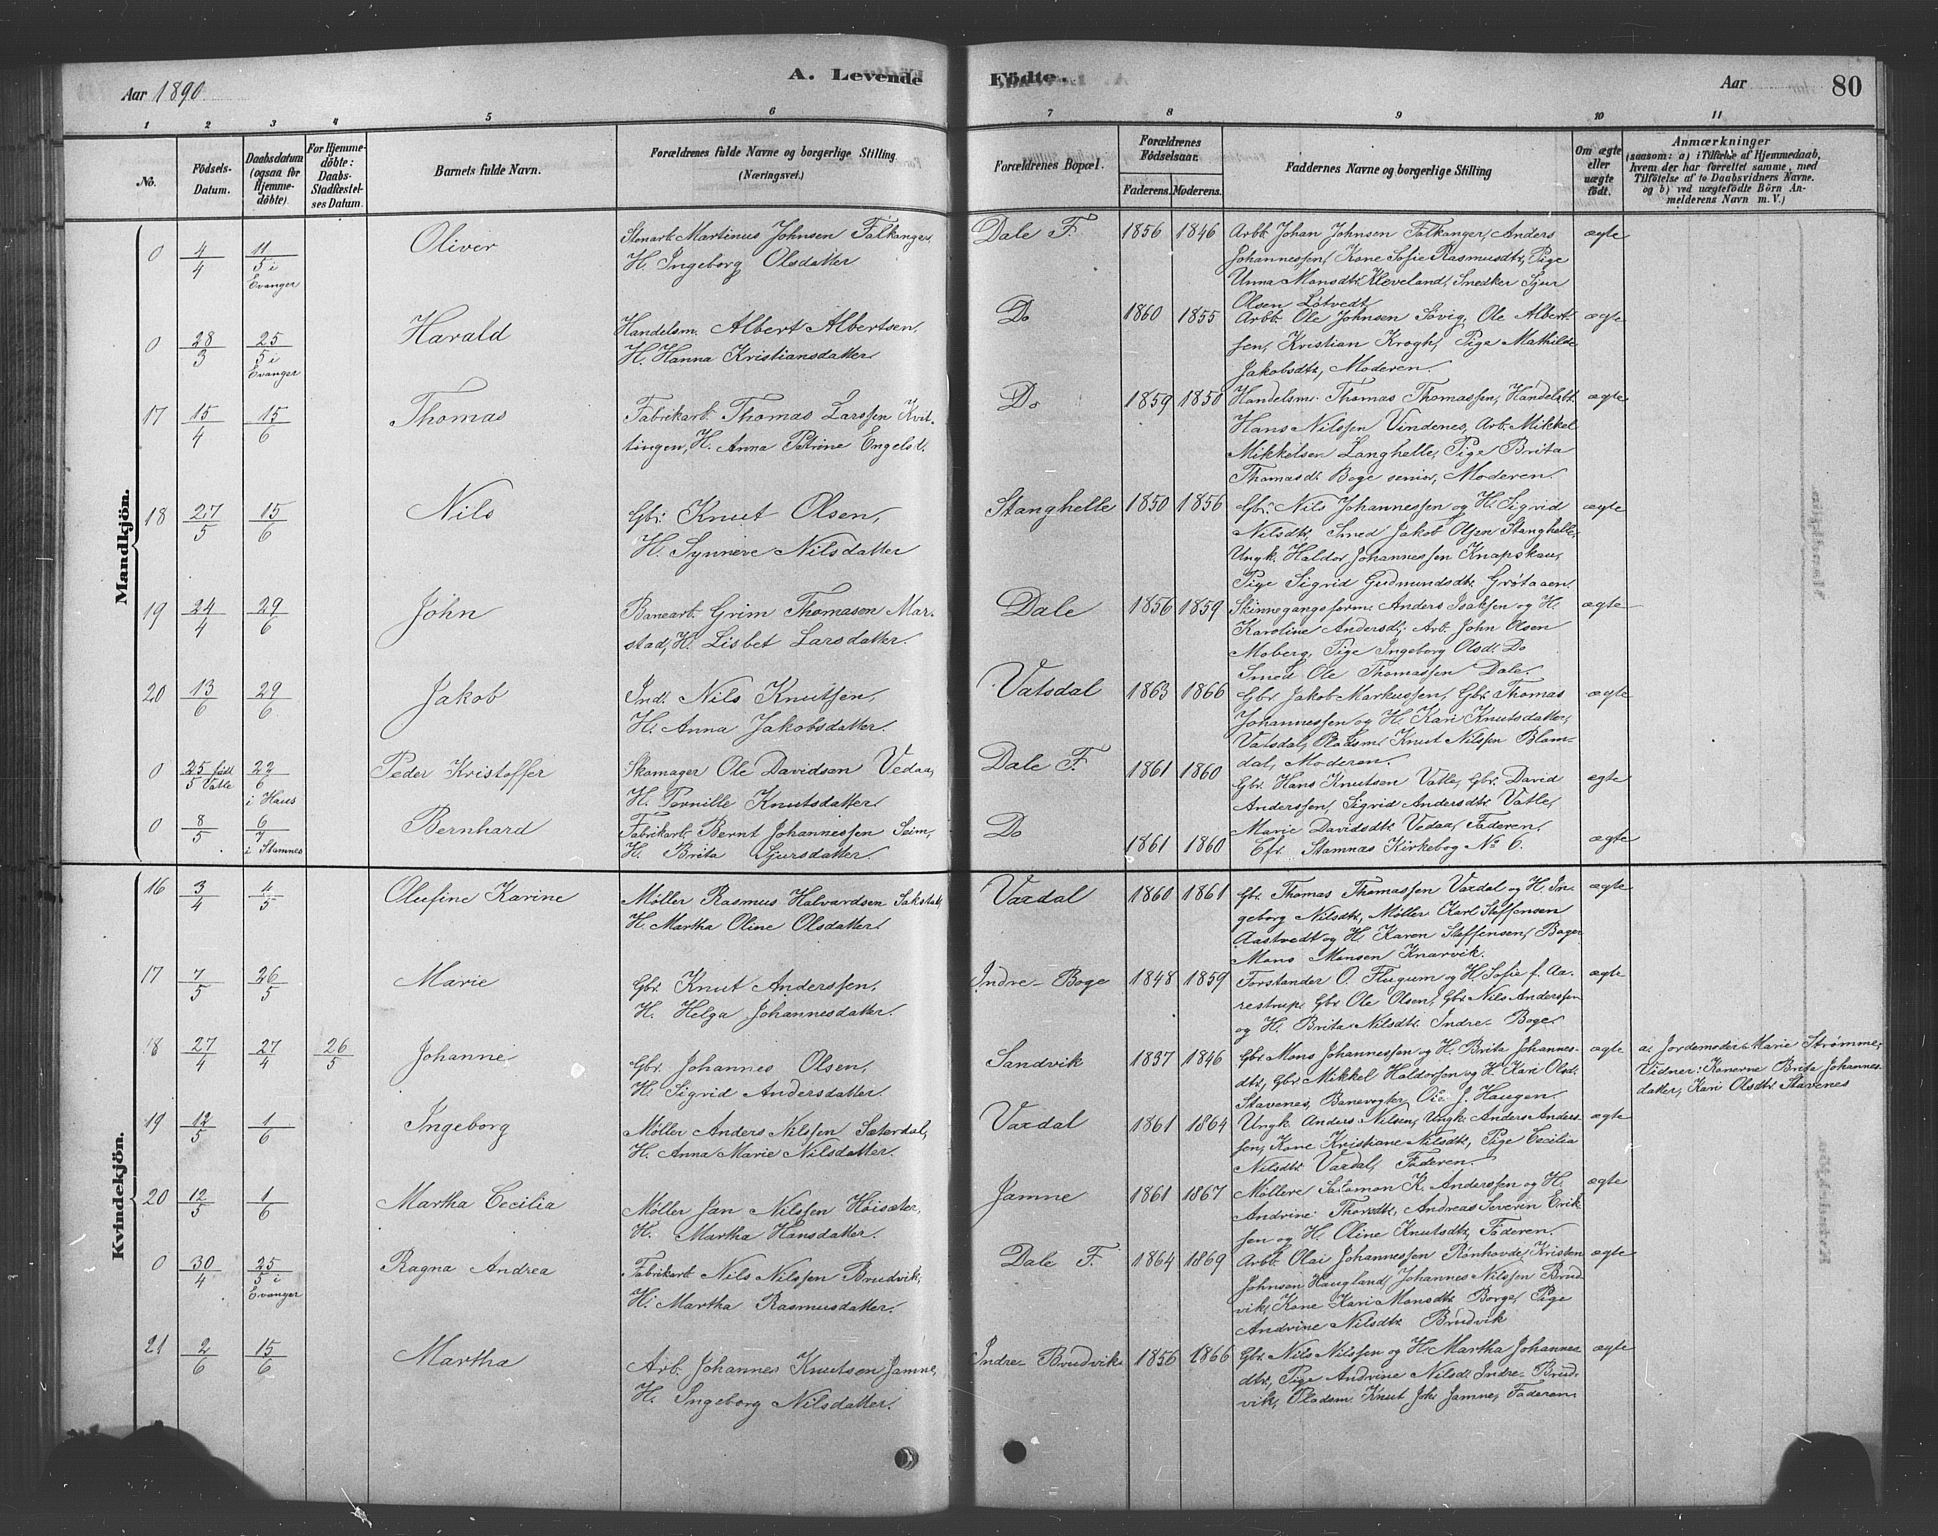 Aar 1890
A. Levende
Födte.
Aar
80
1 2 3 4 5 6 7 8 9 10 11
No.
Födsels-Datum.
Daabsdatum (ogsaa for Hjemme-döbte).
For Hjemme-döbte: Daabs-Stadfæstel-ses Datum.
Barnets fulde Navn.
Forældrenes fulde Navne og borgerlige Stilling (Næringsvei.)
Forældrenes Bopæl.
Forældrenes Födselsaar.
Faderens. Moderens.
Faddernes Navne og borgerlige Stilling
Om ægte eller uægte födt.
Anmærkninger
(saasom: a) i Tilfælde af Hjemmedaab,
hvem der har forrettet samme, med
Tilföielse af to Daabsvidners Navne.
og b) ved uægtefödte Börn An-
melderens Navn m. V.)
Mandkjön.
0 4/4 11/5 i Evanger Oliver
Martinus Johnsen Falkanger,
H. Ingeborg Olsdatter
Dale F. 1856 1846
Arbr. Johan Johnsen Falkanger, Anders
Johannessen, Kone Sofie Rasmusdtr, Pige
Unna Monsdtr. Kleveland, Snedker Sjur
Olsen Lotvedt
ægte
0 28/3 25/5 i Evanger Harald
Handelsm. Albert Albertsen,
H. Hanna Kristiansdatter
Do 1860 1855
Arbr. Ole Johnsen Søvig, Ole Albert-
sen, Kristian Krogh, Pige Mathilde
Jakobsdtr, Moderen.
ægte
17 15/4 15/6 Thomas
Fabrikarb. Thomas Larssen Kvit-
tingen, H. Anna Petrine Engelsd.
Do 1859 1850
Handelsm. Thomas Thomassen, Handelsbt.
Hans Nilssen Vindenes, Arb. Mikkel
Mikkelsen Langhelle, Pige Brita
Thomasdr. Boge senior, Moderen.
ægte
18 27/5 15/6 Nils
Gbr. Knut Olsen,
H. Synneve Nilsdatter
Stanghelle 1850 1856
Gbr. Nils Johannessen og H. Sigrid
Nilsdtr, Smed Jakob Olsen Stanghelle,
Ungk. Haldor Johannessen Knapskau,
Pige Sigrid Gudmundsdtr. Grøtaaen.
ægte
19 24/4 29/6 John
Banearb. Grim Thomasen Mar-
stad, H. Lisbet Larsdatter.
Dale 1856 1859
Skinnegangsform. Anders Isaksen og H.
Karoline Andersdt, Arb. John Olsen
Moberg, Pige Ingeborg Olsdt. Do
Smed Ole Thomassen Dale.
ægte
20 13/6 29/6 Jakob
Ind. Nils Knutsen,
H. Anna Jakobsdatter.
Vatsdal 1863 1866
Gbr. Jakob Markussen, Gbr. Thomas
Johannessen og H. Kari Knutsdatter,
Vatsdal, Pladsm. Knut Nilsen Blom-
dal, Moderen.
ægte
0 25/5 født Vatle 22/6 i Haus Peder Kristoffer
Skomager Ole Davidsen Vedaa,
H. Pernille Knutsdatter.
Dale F 1861 1860
Gbr. Hans Knutsen Vatle, Gbr. David
Anderssen, Sigrid Andersdtr. Vatle,
Marie Davidsdtr. Vedaa, Faderen.
ægte
0 8/5 6/7 i Stamnes Bernhard
Fabrikarb. Bernt Johannessen Seim,
H. Brita Sjursdatter.
Do 1861 1860
Cfr. Stamnæs Kirkebog No 6.
ægte
Kvindekjön.
16 3/4 4/5 Olufine Karine
Møller Rasmus Halvardsen
H. Martha Oline Olsdatter
Vaxdal 1860 1861
Gbr. Thomas Thomassen Vaxdal og H. In-
geborg Nilsdtr, Møller Karl Steffensen
Aastvedt og H. Karen Steffensen, Bager
Mons Monsen Knarvik.
ægte
17 7/5 26/5 Marie
Gbr. Knut Anderssen,
H. Helga Johannesdatter.
Indre Boge 1848 1859
Forstander O. Flugum og H. Sofie f. Aa-
restrup, Gbr Ole Olsen, Gbr Nils Anderssen
og H. Brita Nilsdtr. Indre Boge.
ægte
18 27/4 27/4 26/5 Johanne
Gbr. Johannes Olsen,
H. Sigrid Andersdatter.
Sandvik 1837 1846
Gbr. Mons Johannessen og H. Brita Johannes-
dtr, Gbr. Mikkel Haldorsen og H. Kari Olsd.
Stavenes, Banevogter Ole J. Haugen.
ægte
a. Jordemoder Marie Strømme,
Vidner: Konerne Brita Johannes-
datter, Kari Olsdtr. Stavenes
19 12/5 1/6 Ingeborg
Møller Anders Nilssen Sæterdal,
H. Anna Marie Nilsdatter.
Vaxdal 1861 1864
Ungk. Anders Nilsen, Ungk. Anders Anders-
sen, Kone Kristiane Nilsdtr, Pige Cecilia
Nilsdtr. Vaxdal, Faderen.
ægte
20 12/5 1/6 Martha Cecilia
Møller Jan Nilssen Høisæter,
H. Martha Hansdatter.
Jamne 1861 1867
Møllere Salamon K. Anderssen og H.
Andrine Thorsdtr, Andreas Severin Erik-
sen og H. Oline Knutsdtr, Faderen.
ægte
0 30/4 25/5 i Evanger Ragna Andrea
Fabrikarb. Nils Nilssen Brudvik,
H. Martha Rasmusdatter.
Dale F. 1864 1869
Arbr. Olai Johannessen Rønhovde, Kristen
Johnson Haugland, Johannes Nilssen Brud-
vik, Kone Kari Monsdtr. Borge, Pige
Andrine Nilsdtr. Brudvik
ægte
21 2/6 15/6 Martha
Arb. Johannes Knutsen Jamne,
H. Ingeborg Nilsdatter.
Indre Brudvik 1856 1866
Gbr. Nils Nilssen og H. Martha Johannes-
dtr, Pige Andrine Nilsd. Indre Brud-
vik, Pladsm. Knut Joh. Jamne, Faderen.
ægte